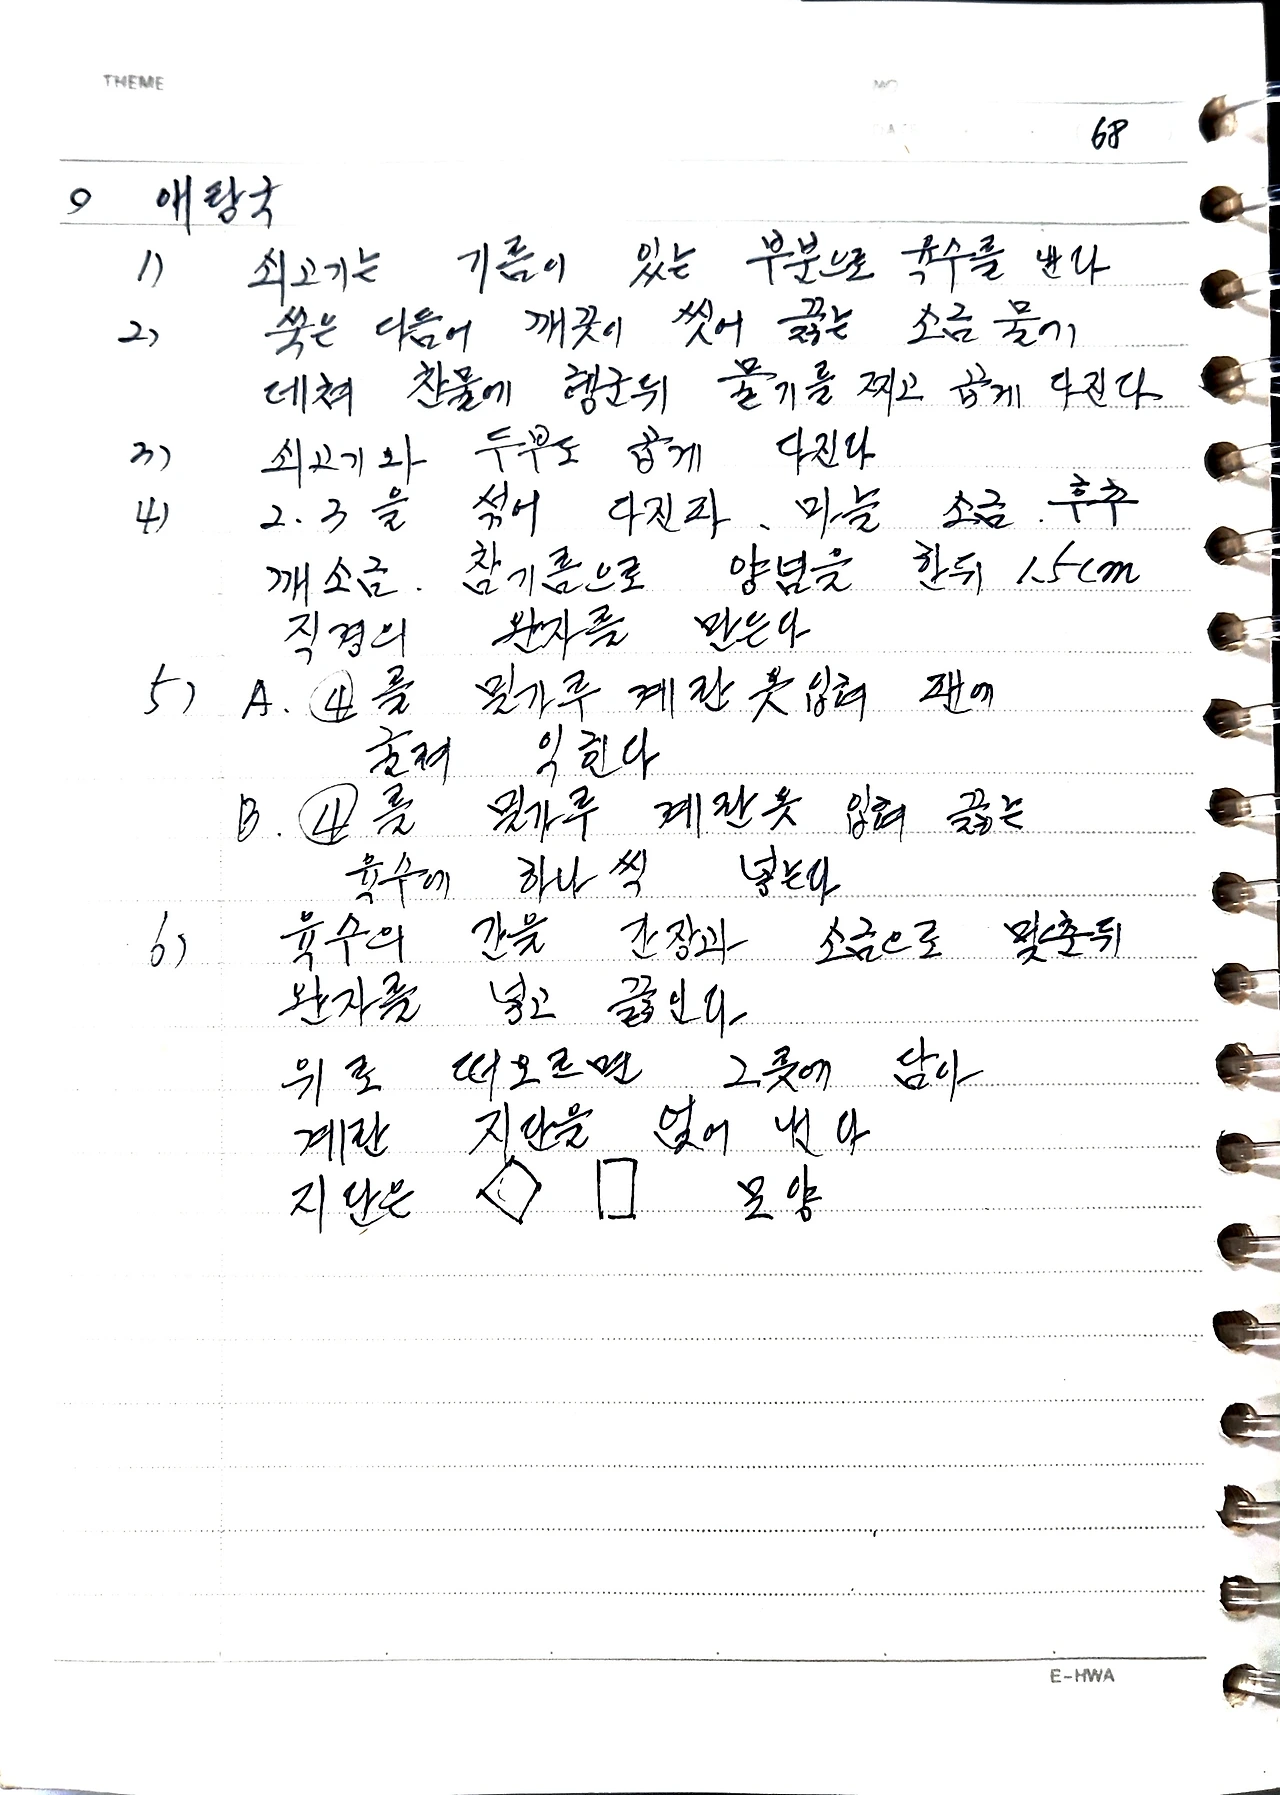 THEME
NO
DATE
68
9 애탕국
1) 쇠고기는 기름이 있는 부분으로 육수를 낸다
2) 쑥은 다듬어 깨끗이 씻어 끓는 소금물에
데쳐 찬물에 헹군뒤 물기를 짜고 곱게 다진다
3) 쇠고기와 두부도 곱게 다진다
4) 2.3을 섞어 다진파. 마늘 소금. 후추
깨소금. 참기름으로 양념을 한뒤 1.5cm
직경의 완자를 만든다
5) A. ④를 밀가루 계란옷입혀 팬에
굴려 익힌다
B. ④를 밀가루 계란옷 입혀 끓는
육수에 하나씩 넣는다
6) 육수의 간을 간장과 소금으로 맞춘뒤
완자를 넣고 끓인다
위로 떠오르면 그릇에 담아
계란 지단을 얹어 낸다
지단은 모양
E-HWA